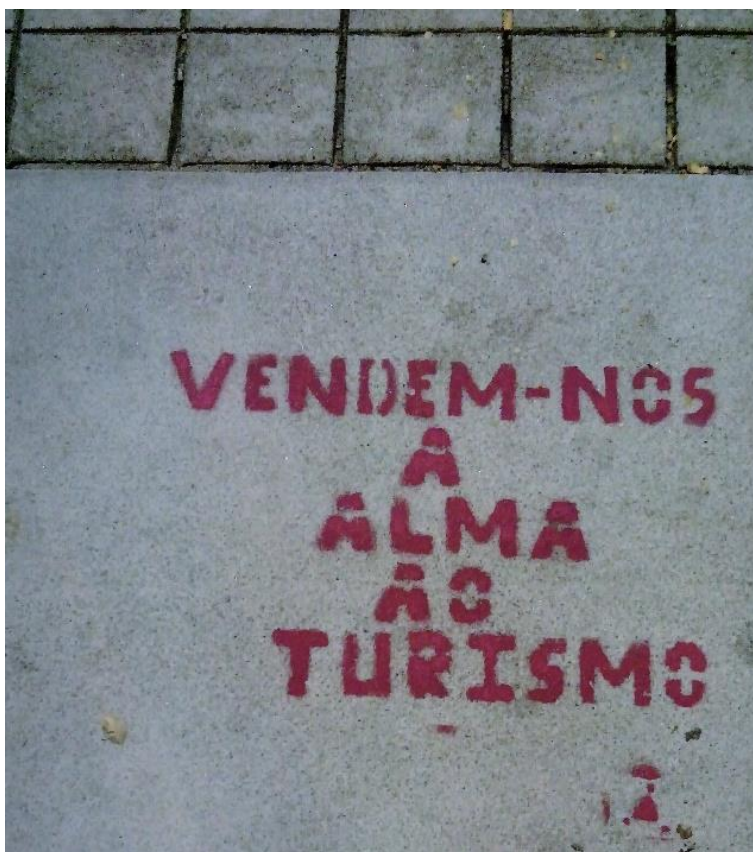 VENDEM-NOS
A
ALMA
AO
TURISMO